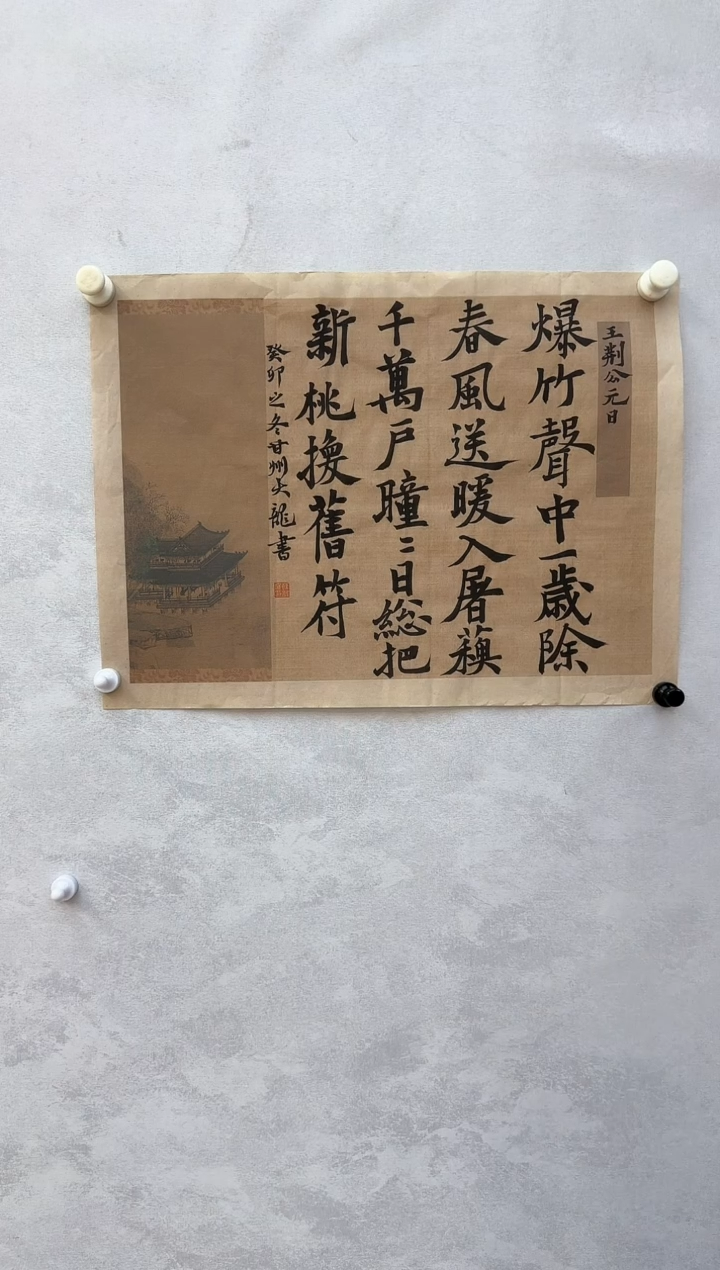 王荆公元日
爆竹聲中一歲除
春風送暖入屠蘓
千萬戶曈〻日總把
新桃換舊符
癸卯之冬甘州大龍書